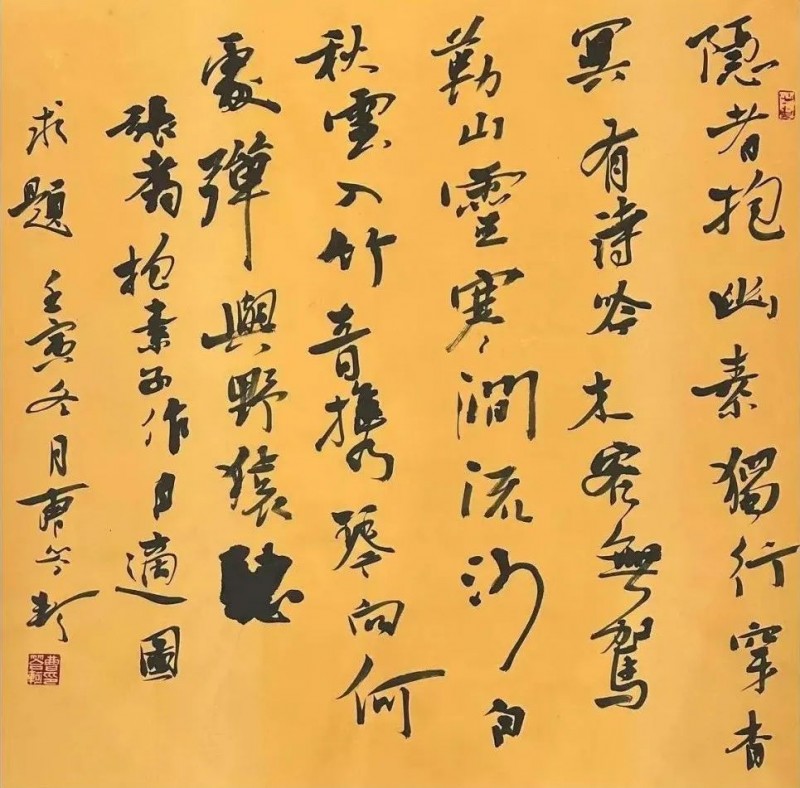 隱者抱幽素獨行穿杳
冥有詩吟木客無駕
勒山靈寒澗流沙白
秋雲入竹青攜琴向何
處彈與野猿聽
張翥抱素子作自適圖
求題 壬寅冬月